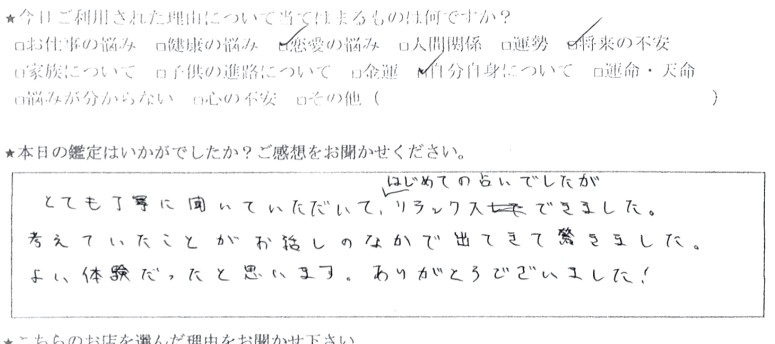 ★今日ご利用された理由について当てはまるものは何ですか？
□お仕事の悩み □健康の悩み ☑恋愛の悩み □人間関係 □運勢 ☑将来の不安
□家族について □子供の進路について □金運 ☑自分自身について □運命・天命
□悩みが分からない □心の不安 □その他（ ）
★本日の鑑定はいかがでしたか？ご感想をお聞かせください。
はじめての占いでしたが
とても丁寧に聞いていただいて、リラックスできました。
考えていたことがお話しのなかで出てきて驚きました。
よい体験だったと思います。ありがとうございました！
★こちらのお店を選んだ理由をお聞かせ下さい